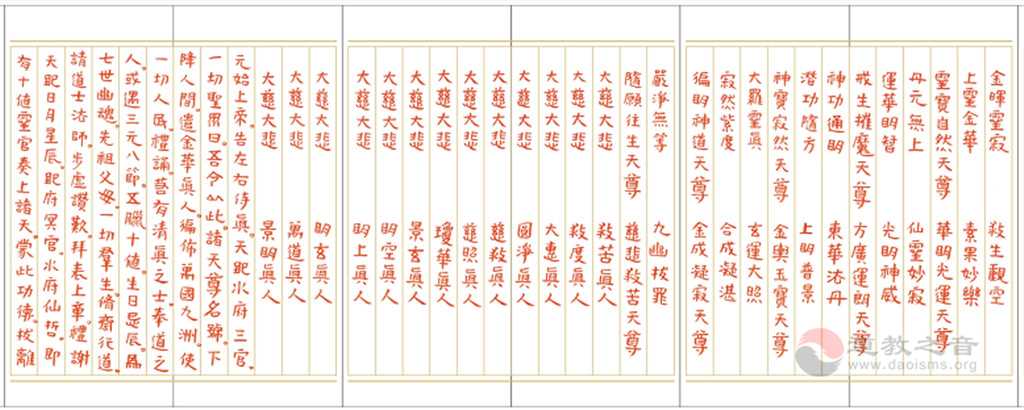 金暉靈寂 救生觀空
上靈金華 素果妙樂
靈寶自然天尊 華明光運天尊
丹元無上 仙靈妙寂
運華明 光明神威
戒生摧魔天尊 方廣運朗天尊
神功通明 東華滌丹
潛功隨方 上明普景
神寶寂然天尊 金輿玉寶天尊
大羅靈眞 玄運大照
寂然紫度 合成凝湛
徧明神道天尊 金成凝寂天尊
嚴淨無等 九幽拔罪
隨願往生天尊 慈悲救苦天尊
大慈大悲 救苦眞人
大慈大悲 救度眞人
大慈大悲 大惠眞人
大慈大悲 圓淨眞人
大慈大悲 慈救眞人
大慈大悲 慈照眞人
大慈大悲 瓊華眞人
大慈大悲 景玄眞人
大慈大悲 明空眞人
大慈大悲 明上眞人
大慈大悲 明玄眞人
大慈大悲 萬道眞人
大慈大悲 景明眞人
元始上帝。告左右侍眞。天地水府三官。
一切聖眾曰。吾今以此。諸天尊名號。下
降人間。遣金華眞人。徧佈萬國九洲。使
一切人民。禮誦。若有清眞之士。奉道之
人。或遇三元八節。五臘十値。生日是辰。為
七世幽魂。先祖父母。一切羣生。脩齋行道。
請道士法師。步虛讚歎。拜表上章。禮謝
天地日月星辰。地府冥官。水府仙哲。即
有十値靈官。奏上諸天。蒙此功德。拔離
道教之音
www.daoisms.org